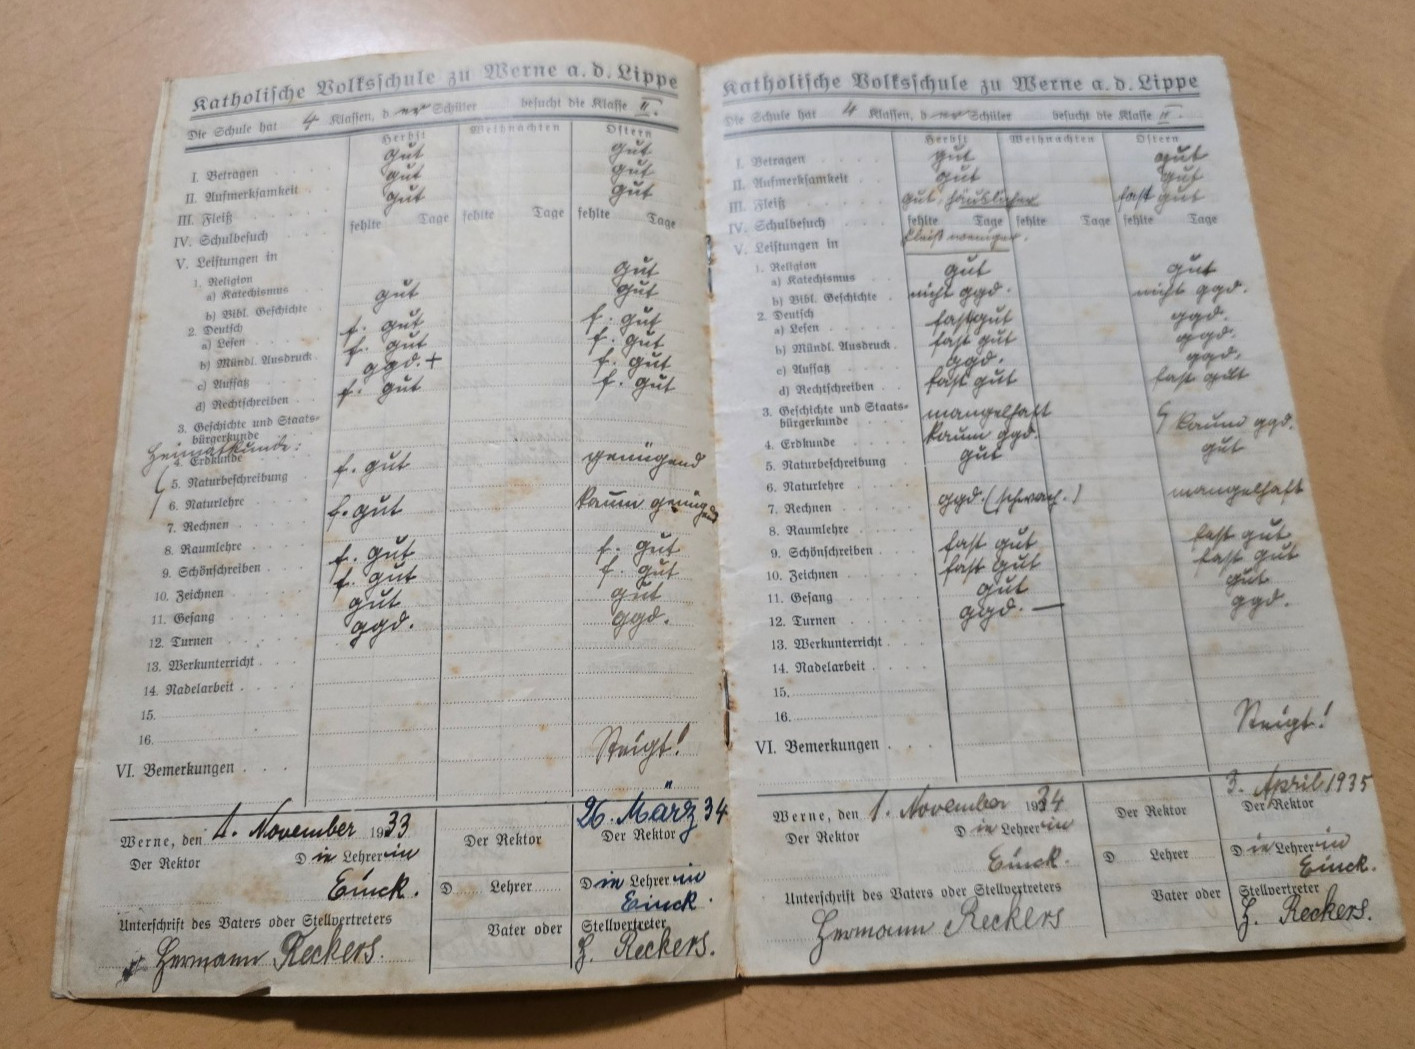 Katholische Volksschule zu Werne a. d. Lippe
Die Schule hat 4 Klassen, der Schüler besucht die Klasse II.
Herbst Weihnachten Ostern
I. Betragen gut gut
II. Aufmerksamkeit gut gut
III. Fleiß gut gut
IV. Schulbesuch fehlte Tage fehlte Tage fehlte Tage
V. Leistungen in
1. Religion
a) Katechismus gut
b) Bibl. Geschichte gut gut
2. Deutsch
a) Lesen f. gut f. gut
b) Mündl. Ausdruck f. gut f. gut
c) Aufsatz ggd. + f. gut
d) Rechtschreiben f. gut f. gut
3. Geschichte und Staats-
bürgerkunde
Heimatkunde:
4. Erdkunde
5. Naturbeschreibung f. gut genügend
6. Naturlehre
7. Rechnen f. gut kaum genügend
8. Raumlehre
9. Schönschreiben f. gut f. gut
10. Zeichnen f. gut f. gut
11. Gesang gut gut
12. Turnen ggd. ggd.
13. Werkunterricht
14. Nadelarbeit
15.
16.
VI. Bemerkungen Steigt!
Werne, den 1. November 1933 26. März 34
Der Rektor Die Lehrerin Der Rektor Der Rektor
Einck. D Lehrer Die Lehrerin
Einck.
Unterschrift des Vaters oder Stellvertreters Vater oder Stellvertreter
Hermann Reckers. H. Reckers.
Katholische Volksschule zu Werne a. d. Lippe
Die Schule hat 4 Klassen, der Schüler besucht die Klasse II.
Herbst Weihnachten Ostern
I. Betragen gut gut
II. Aufmerksamkeit gut gut
III. Fleiß gut, häuslicher fast gut
IV. Schulbesuch fehlte Tage fehlte Tage fehlte Tage
Fleiß weniger.
V. Leistungen in
1. Religion
a) Katechismus gut gut
b) Bibl. Geschichte nicht ggd. nicht ggd.
2. Deutsch
a) Lesen fast gut ggd.
b) Mündl. Ausdruck fast gut ggd.
c) Aufsatz ggd. ggd.
d) Rechtschreiben fast gut fast gut
3. Geschichte und Staats-
bürgerkunde mangelhaft
4. Erdkunde kaum ggd. kaum ggd.
5. Naturbeschreibung gut gut
6. Naturlehre
7. Rechnen ggd. (schwach.) mangelhaft
8. Raumlehre
9. Schönschreiben fast gut fast gut
10. Zeichnen fast gut fast gut
11. Gesang gut gut
12. Turnen ggd. — ggd.
13. Werkunterricht
14. Nadelarbeit
15.
16.
VI. Bemerkungen Steigt!
Werne, den 1. November 1934 3. April 1935
Der Rektor Die Lehrerin Der Rektor Der Rektor
Einck. D Lehrer Die Lehrerin
Einck.
Unterschrift des Vaters oder Stellvertreters Vater oder Stellvertreter
Hermann Reckers H. Reckers.